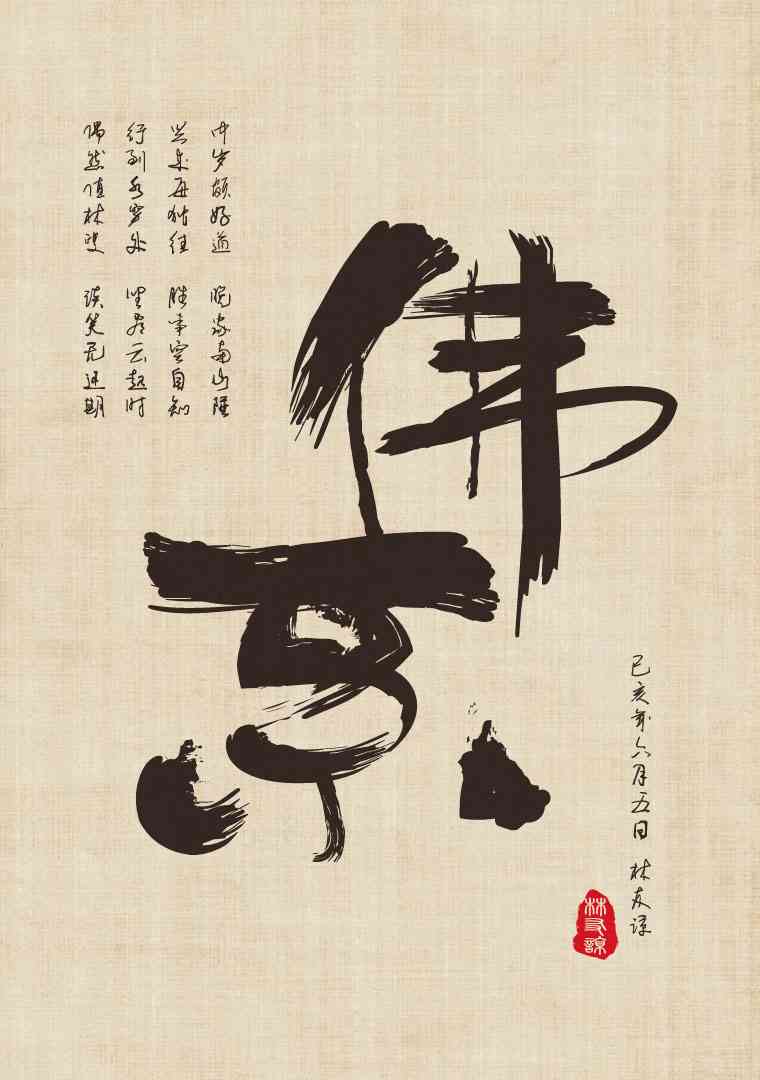 佛系
中岁颇好道 晚家南山陲
兴来每独往 胜事空自知
行到水穷处 坐看云起时
偶然值林叟 谈笑无还期
己亥年六月五日 林友谅
林友諒